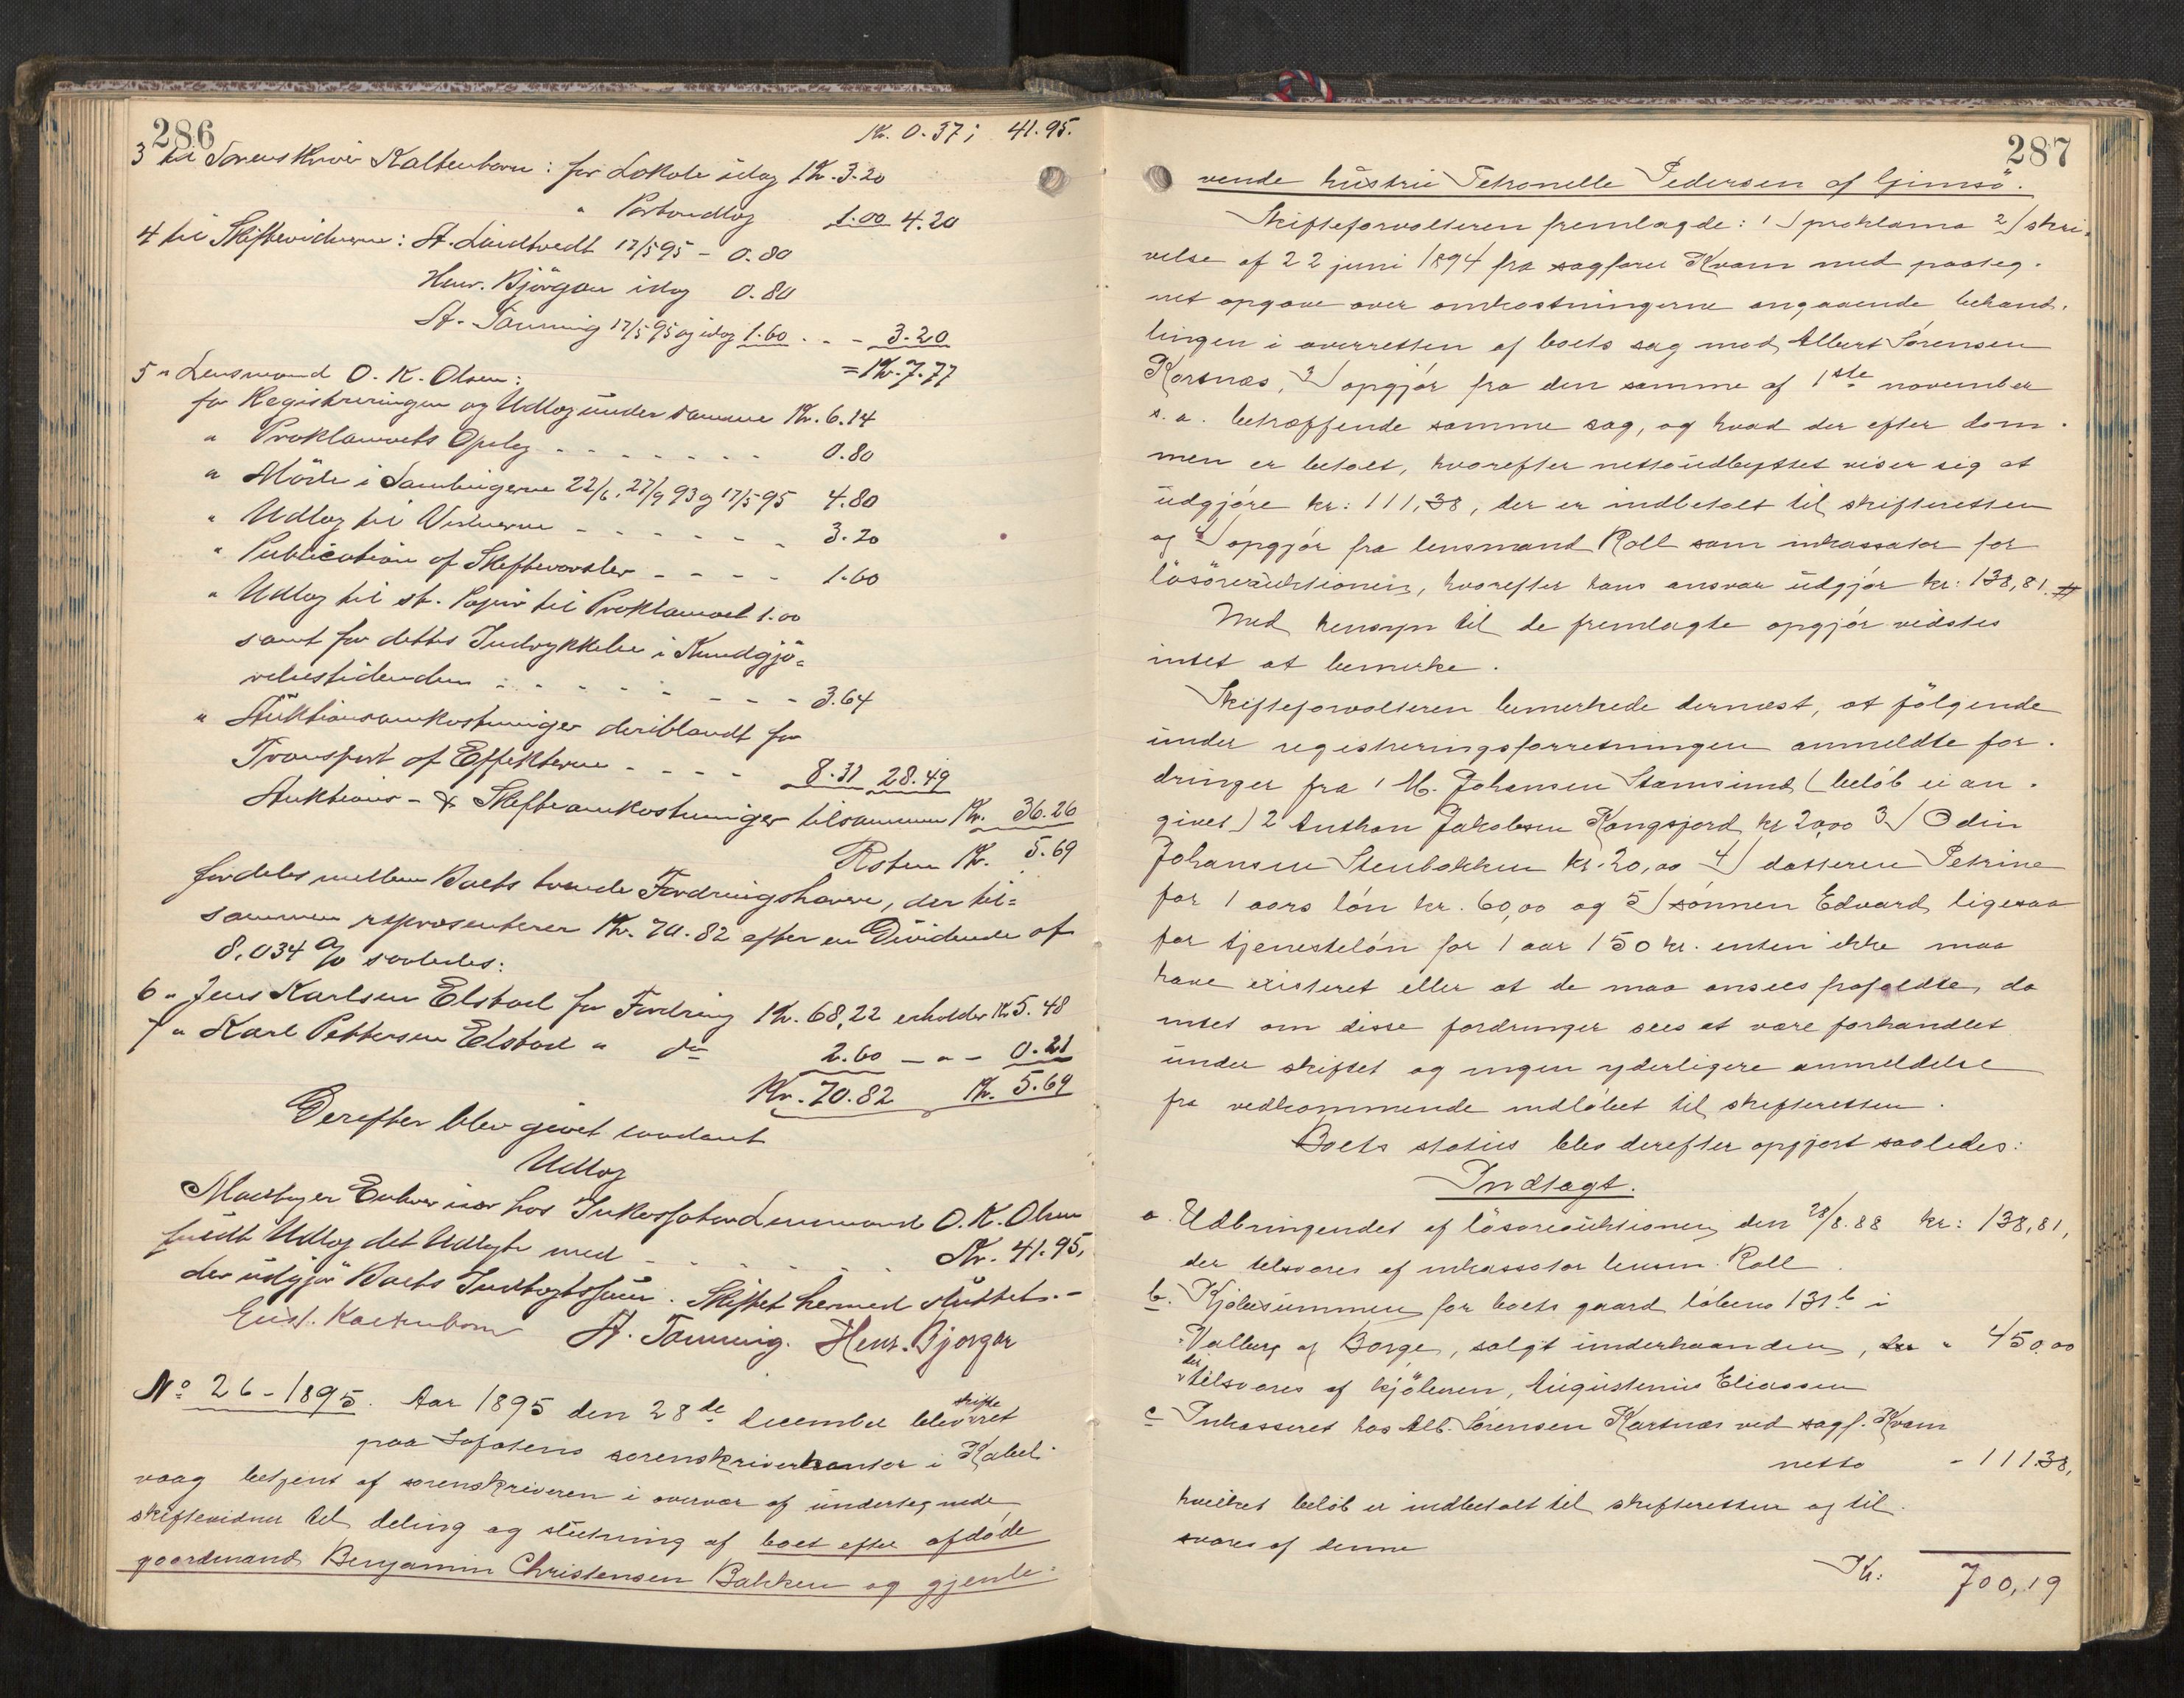 286
Kr. 0.37; 41.95.
3 til Sorenskriver Kaltenborn: for Lokale idag Kr. 3.20
" Portoudlæg 1.00 4.20
4 til Skiftevidnerne: A. Lindtvedt 17/5 95 - 0.80
Henr. Bjørgan idag 0.80
A. Tanning 17/5 95 og idag 1.60 . . - 3.20
= Kr. 7.77
5 " Lensmand O. K. Olsen:
for Registreringen og Udlæg under samme Kr. 6.14
" Proklamaets Opslag - - - - - - - 0.80
" Møde i Samlingerne 22/6, 27/9 93 og 17/5 95 4.80
" Udlæg til Vidnerne - - - - - - 3.20
" Publication af Skiftevarsler - - - - 1.60
" Udlæg til st. Papir til Proklamaet 1.00
samt for dettes Indrykkelse i Kundgjø=
relsestidenden - - - - - - - - 3.64
" Auktionsomkostninger deriblandt for
Transport af Effekterne - - - - 8.31 28.49
Auktions- & Skifteomkostninger tilsammen Kr. 36.26
Resten Kr. 5.69
fordeles mellem Boets tvende Fordringshavere, der til=
sammen repræsenterer Kr. 70.82 efter en Dividende af
8.034 % saaledes:
6 " Jens Karlsen Elstad for Fordring Kr. 68,22 erholder Kr 5.48
7 " Karl Pettersen Elstad " do 2.60 - " - 0.21
Kr. 70.82 Kr. 5.69
Derefter blev givet saadant
Udlæg
Modtager Enhver især hos Inkassator Lensmand O. K. Olsen
fuldt Udlæg det Udlagte med - - - - - Kr. 41.95,
der udgjør Boets Indtægtssum. Skiftet hermed sluttet. -
Gust. Kaltenborn A. Tanning. Henr. Bjørgan
No 26 - 1895. Aar 1895 den 28de december blev skifteret
paa Lofotens sorenskriverkontor i Kabel-
vaag betjent af sorenskriveren i overvær af undertegnede
skiftevidner til deling og slutning af boet efter afdøde
gaardmand Benjamin Christensen Bakken og gjenle-
287
vende hustru Petronelle Pedersen af Gimsø.
Skifteforvalteren fremlagde: 1) proklama 2) skri-
velse af 22 juni 1894 fra sagfører Kvam med paateg-
net opgave over omkostningerne angaaende behand-
lingen i overretten af boets sag mod Albert Sørensen
Korsnæs, 3) opgjør fra den samme af 1ste november
s. a. betræffende samme sag, og hvad der efter dom-
men er betalt, hvorefter nettoudbyttet viser sig at
udgjøre kr: 111,38, der er indbetalt til skifteretten
og 4) opgjør fra lensmand Roll som inkassator for
løsøreauktionen, hvorefter hans ansvar udgjør kr: 138,81.
Med hensyn til de fremlagte opgjør vidstes
intet at bemerke.
Skifteforvalteren bemerkede dernæst, at følgende
under registreringsforretningen anmeldte for-
dringer fra 1 M. Johansen Stamsund (beløb ei an-
givet) 2 Anthon Jakobsen Kongsjord kr 20,00 3) Odin
Johansen Stenbakken kr. 20,00 4) datteren Petrine
for 1 aars løn kr. 60,00 og 5) sønnen Edvard ligesaa
for tjenesteløn for 1 aar 150 kr. enten ikke maa
have existeret eller at de maa ansees frafaldte, da
intet om disse fordringer sees at være forhandlet
under skiftet og ingen yderligere anmeldelse
fra vedkommende indløbet til skifteretten.
Boets status blev derefter opgjort saaledes:
Indtægt.
a. Udbringendet af løsøreauktionen den 28/8. 88 kr: 138,81,
der tilsvares af inkassator lensm. Roll.
b. Kjøbesummen for boets gaard løbeno 131 b i
Valberg af Borge, solgt underhaanden, " 450.00
der tilsvares af kjøberen, Augustinus Eliassen
c Inkasseret hos Alb. Sørensen Korsnæs ved sagf. Kvam
netto - 111.38,
hvilket beløb er indbetalt til skifteretten og til-
svares af denne
Kr: 700,19